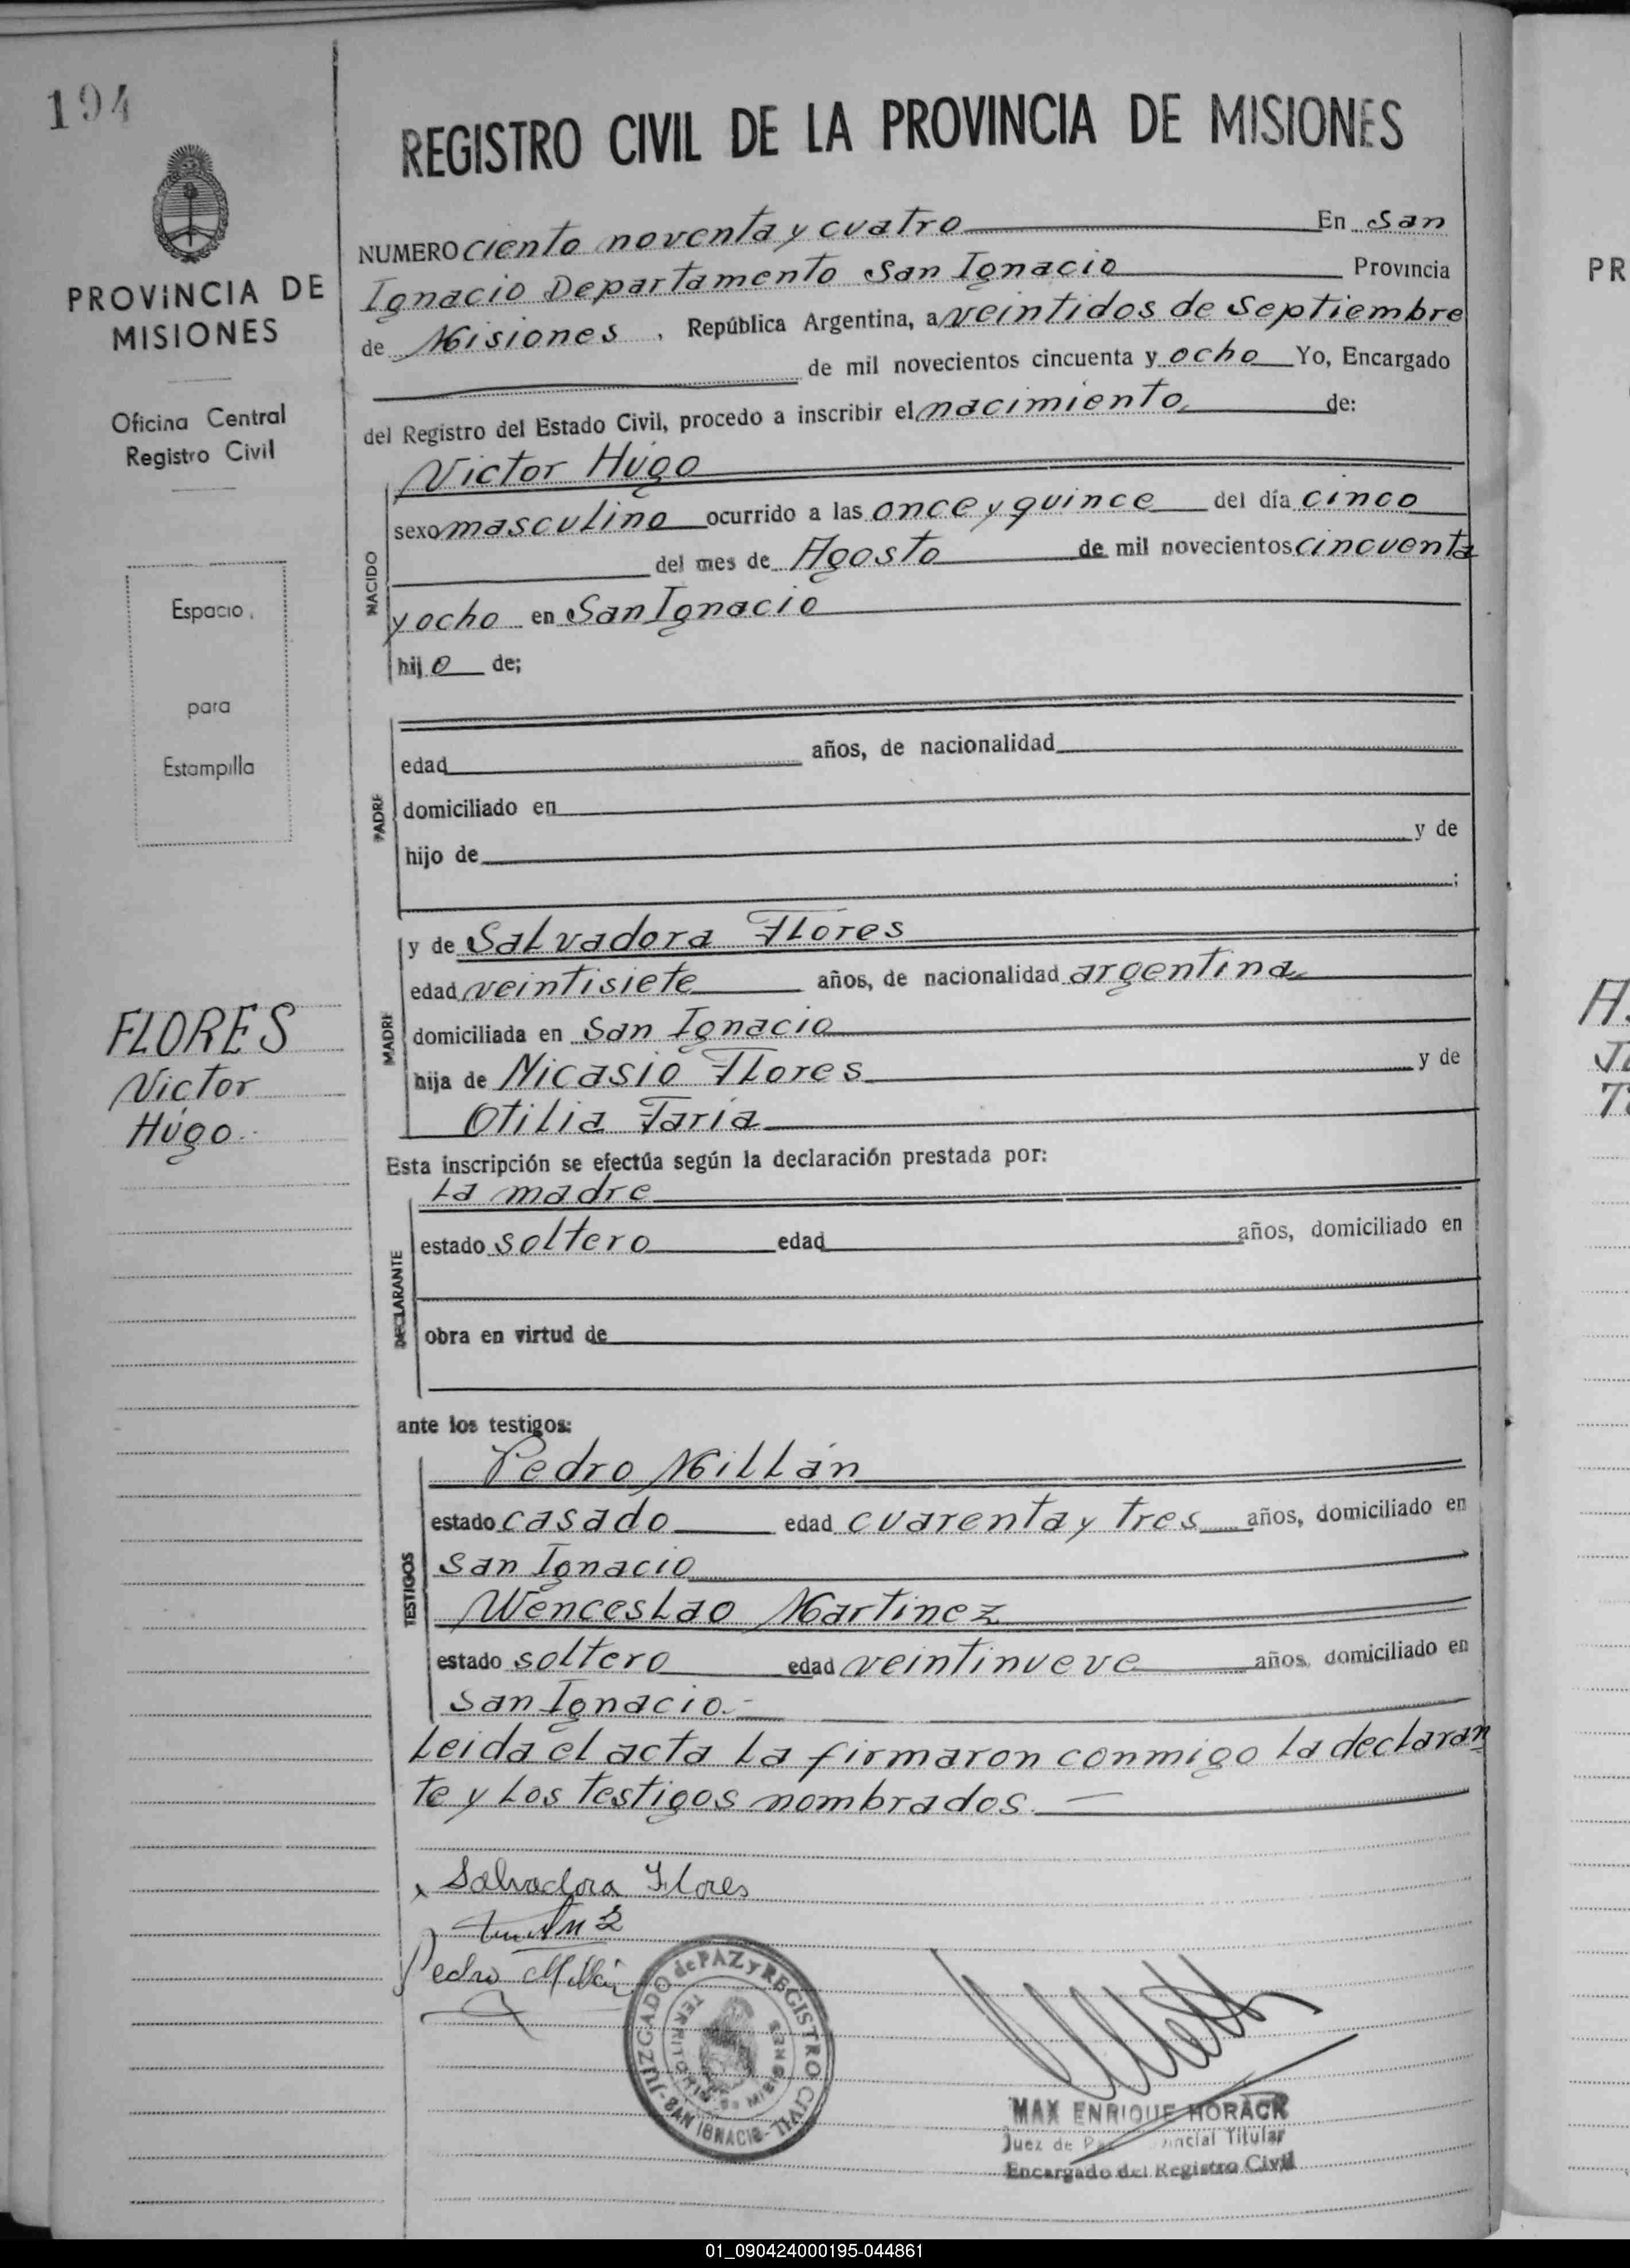 194
PROVINCIA DE
MISIONES
Oficina Central
Registro Civil
Espacio
para
Estampilla
FLORES
Victor
Húgo
REGISTRO CIVIL DE LA PROVINCIA DE MISIONES
NUMERO ciento noventa y cuatro En San
Ignacio Departamento San Ignacio Provincia
de Misiones, República Argentina, a veintidos de Septiembre
de mil novecientos cincuenta y ocho Yo, Encargado
del Registro del Estado Civil, procedo a inscribir el nacimiento de:
NACIDO
Victor Húgo
sexo masculino ocurrido a las once y quince del día cinco
del mes de Agosto de mil novecientos cincuenta
y ocho en San Ignacio
hijo de;
PADRE
edad años, de nacionalidad
domiciliado en
hijo de y de
;
MADRE
y de Salvadora Flores
edad veintisiete años, de nacionalidad argentina
domiciliada en San Ignacio
hija de Nicasio Flores y de
Otilia Faria
Esta inscripción se efectúa según la declaración prestada por:
DECLARANTE
La madre
estado soltero edad años, domiciliado en
obra en virtud de
ante los testigos:
TESTIGOS
Pedro Millán
estado casado edad cuarenta y tres años, domiciliado en
San Ignacio
Wenceslao Martinez
estado soltero edad veintinueve años, domiciliado en
San Ignacio.-
Leida el acta la firmaron conmigo la declaran
te y los testigos nombrados. —
Salvadora Flores
Pedro Millán
JUZGADO de PAZ y REGISTRO CIVIL
TERRITORIO de MISIONES
- SAN IGNACIO -
MAX ENRIQUE HORACK
Juez de Titular
Encargado del Registro Civil
PR
01_090424000195-044861